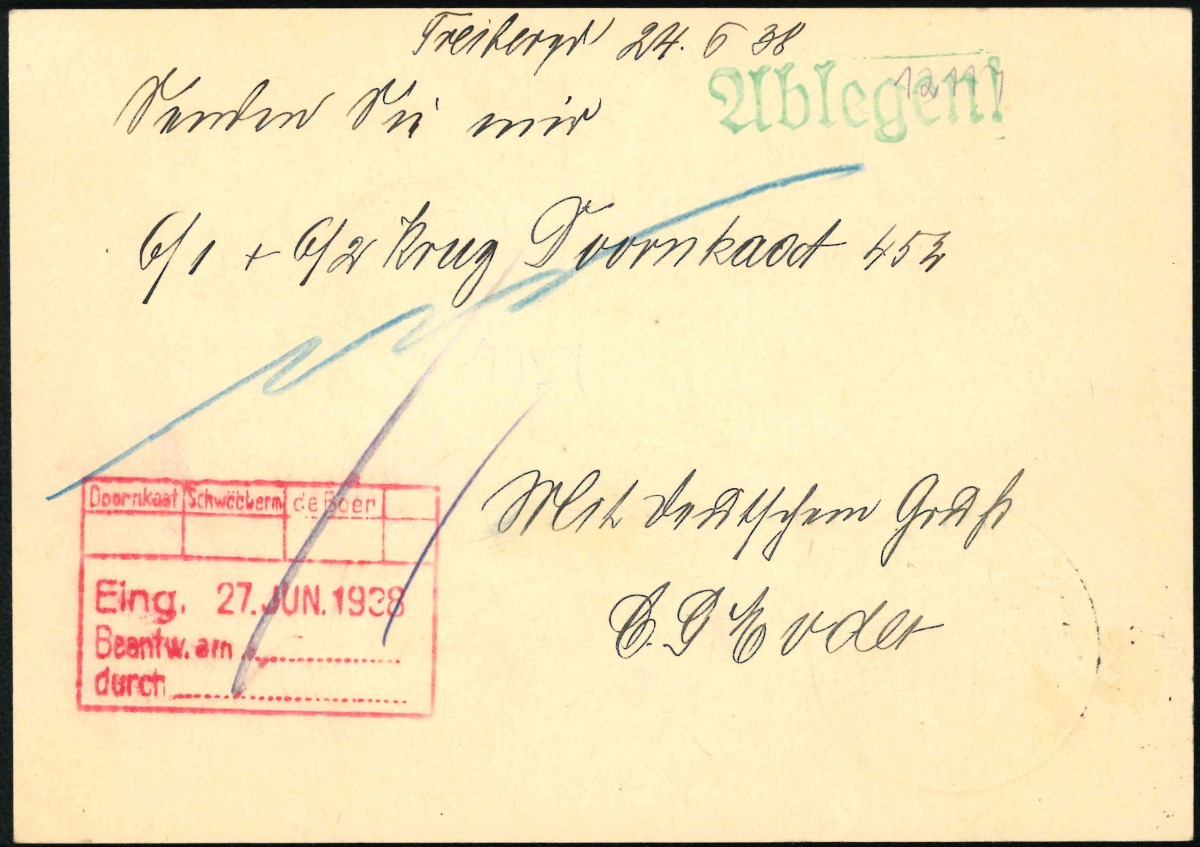 Freiberg 24. 6 38
Ablegen!
Senden Sie mir
6/1 + 6/2 Krug Doornkaat 45%
Mit deutschem Gruß
Doornkaat Schwöbberm de Boer
Eing. 27. JUN. 1938
Beantw. am
durch